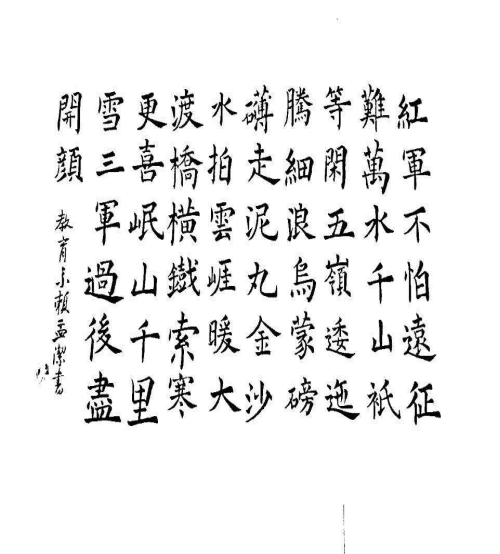 紅軍不怕遠征
難萬水千山祇
等閑五嶺逶迤
騰細浪烏蒙磅
礴走泥丸金沙
水拍雲崕暖大
渡橋橫鐵索寒
更喜岷山千里
雪三軍過後盡
開顏
教育系賴孟潔書